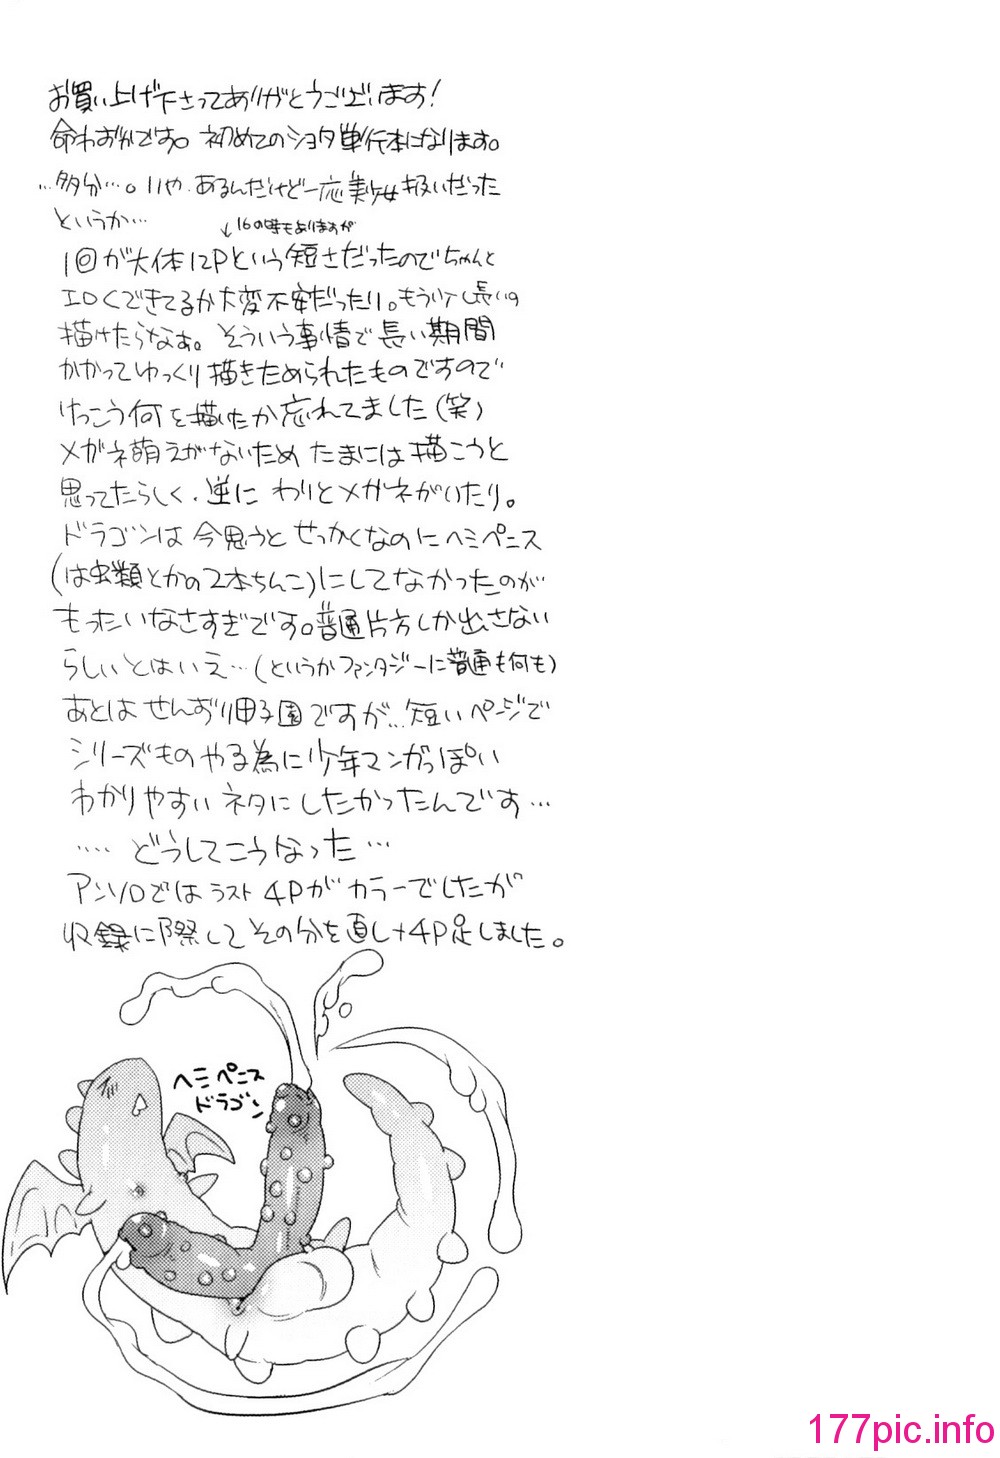 お買い上げ下さってありがとうございます!
命わずかです。初めてのショタ単行本になります。
…多分…。いや、あるんだけど一応美少女扱いだった
というか…
↓16の時もありますが
1回が大体12Pという短さだったのでちゃんと
エロくできてるか大変不安だったり。もう少し長いの
描けたらなぁ。そういう事情で長い期間
かかってゆっくり描きためられたものですので
けっこう何を描いたか忘れてました(笑)
メガネ萌えがないため たまには描こうと
思ってたらしく、逆に わりとメガネがいたり。
ドラゴンは今思うと せっかくなのにヘミペニス
(は虫類とかの2本ちんこ)にしてなかったのが
もったいなさすぎです。普通片方しか出さない
らしいとはいえ…(というかファンタジーに普通も何も)
あとは せんずり甲子園ですが…短いページで
シリーズものやる為に少年マンガっぽい
わかりやすいネタにしたかったんです…
…‥どうしてこうなった…
アンソロではラスト4Pがカラーでしたが
収録に際してその分を直し+4P足しました。
ヘミペニス
ドラゴン
177pic.info